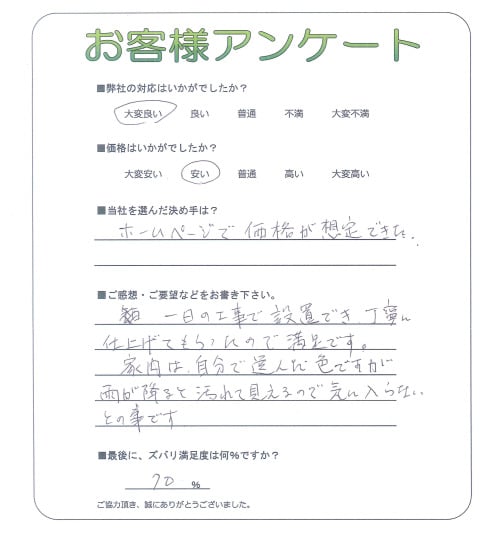 お客様アンケート
■弊社の対応はいかがでしたか？
大変良い 良い 普通 不満 大変不満
■価格はいかがでしたか？
大変安い 安い 普通 高い 大変高い
■当社を選んだ決め手は？
ホームページで価格が想定できた。
■ご感想・ご要望などをお書き下さい。
一日の工事で設置でき丁寧に
仕上げてもらったので満足です。
家内は、自分で選んだ色ですが
雨が降ると汚れて見えるので気に入らない
との事です
■最後に、ズバリ満足度は何%ですか？
70 %
ご協力頂き、誠にありがとうございました。